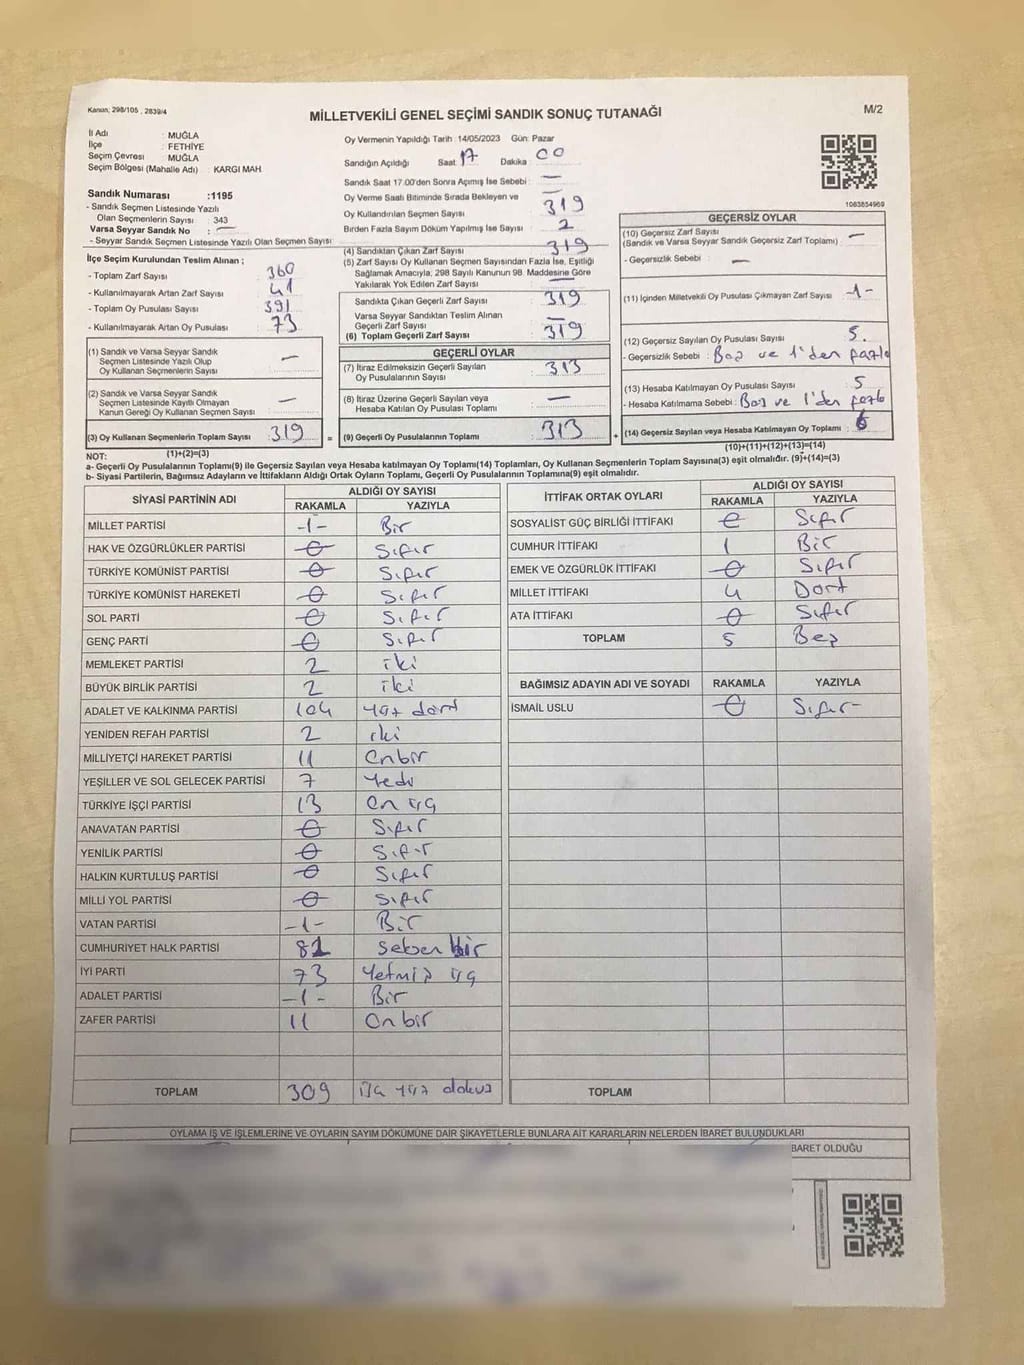 Kanun; 298/105 , 2839/4
MİLLETVEKİLİ GENEL SEÇİMİ SANDIK SONUÇ TUTANAĞI
M/2
İl Adı : MUĞLA
İlçe : FETHİYE
Seçim Çevresi : MUĞLA
Seçim Bölgesi (Mahalle Adı) : KARGI MAH.
Sandık Numarası :1195
- Sandık Seçmen Listesinde Yazılı
Olan Seçmenlerin Sayısı : 343
Varsa Seyyar Sandık No : —
- Seyyar Sandık Seçmen Listesinde Yazılı Olan Seçmen Sayısı
İlçe Seçim Kurulundan Teslim Alınan ;
- Toplam Zarf Sayısı : 360
- Kullanılmayarak Artan Zarf Sayısı : 41
- Toplam Oy Pusulası Sayısı : 391
- Kullanılmayarak Artan Oy Pusulası : 73
(1) Sandık ve Varsa Seyyar Sandık
Seçmen Listesinde Yazılı Olup
Oy Kullanan Seçmenlerin Sayısı : —
(2) Sandık ve Varsa Seyyar Sandık
Seçmen Listesinde Kayıtlı Olmayan
Kanun Gereği Oy Kullanan Seçmen Sayısı : —
(3) Oy Kullanan Seçmenlerin Toplam Sayısı : 319
(1)+(2)=(3)
Oy Vermenin Yapıldığı Tarih :14/05/2023 Gün: Pazar
Sandığın Açıldığı Saat: 17 Dakika : 00
Sandık Saat 17.00'den Sonra Açımış İse Sebebi : —
Oy Verme Saati Bitiminde Sırada Bekleyen ve
Oy Kullandırılan Seçmen Sayısı : 319
Birden Fazla Sayım Döküm Yapılmış İse Sayısı : 2
(4) Sandıktan Çıkan Zarf Sayısı : 319
(5) Zarf Sayısı Oy Kullanan Seçmen Sayısından Fazla İse, Eşitliği
Sağlamak Amacıyla, 298 Sayılı Kanunun 98. Maddesine Göre
Yakılarak Yok Edilen Zarf Sayısı : —
Sandıkta Çıkan Geçerli Zarf Sayısı : 319
Varsa Seyyar Sandıktan Teslim Alınan
Geçerli Zarf Sayısı : —
(6) Toplam Geçerli Zarf Sayısı : 319
GEÇERLİ OYLAR
(7) İtiraz Edilmeksizin Geçerli Sayılan
Oy Pusulalarının Sayısı : 313
(8) İtiraz Üzerine Geçerli Sayılan veya
Hesaba Katılan Oy Pusulası Toplamı : —
= (9) Geçerli Oy Pusulalarının Toplamı : 313 +
1083854969
GEÇERSİZ OYLAR
(10) Geçersiz Zarf Sayısı : —
(Sandık ve Varsa Seyyar Sandık Geçersiz Zarf Toplamı)
- Geçersizlik Sebebi : —
(11) İçinden Milletvekili Oy Pusulası Çıkmayan Zarf Sayısı : -1-
(12) Geçersiz Sayılan Oy Pusulası Sayısı : 5.
- Geçersizlik Sebebi : Boş ve 1'den fazla
(13) Hesaba Katılmayan Oy Pusulası Sayısı : 5
- Hesaba Katılmama Sebebi : Boş ve 1'den fazla
(14) Geçersiz Sayılan veya Hesaba Katılmayan Oy Toplamı : 6
(10)+(11)+(12)+(13)=(14)
NOT:
a- Geçerli Oy Pusulalarının Toplamı(9) ile Geçersiz Sayılan veya Hesaba katılmayan Oy Toplamı(14) Toplamları, Oy Kullanan Seçmenlerin Toplam Sayısına(3) eşit olmalıdır. (9)+(14)=(3)
b- Siyasi Partilerin, Bağımsız Adayların ve İttifakların Aldığı Ortak Oyların Toplamı, Geçerli Oy Pusulalarının Toplamına(9) eşit olmalıdır.
SİYASİ PARTİNİN ADI ALDIĞI OY SAYISI
RAKAMLA YAZIYLA
MİLLET PARTİSİ -1- Bir
HAK VE ÖZGÜRLÜKLER PARTİSİ 0 Sıfır
TÜRKİYE KOMÜNİST PARTİSİ 0 Sıfır
TÜRKİYE KOMÜNİST HAREKETİ 0 Sıfır
SOL PARTİ 0 Sıfır
GENÇ PARTİ 0 Sıfır
MEMLEKET PARTİSİ 2 iki
BÜYÜK BİRLİK PARTİSİ 2 iki
ADALET VE KALKINMA PARTİSİ 104 yüz dört
YENİDEN REFAH PARTİSİ 2 iki
MİLLİYETÇİ HAREKET PARTİSİ 11 Onbir
YEŞİLLER VE SOL GELECEK PARTİSİ 7 Yedi
TÜRKİYE İŞÇİ PARTİSİ 13 On üç
ANAVATAN PARTİSİ 0 Sıfır
YENİLİK PARTİSİ 0 Sıfır
HALKIN KURTULUŞ PARTİSİ 0 Sıfır
MİLLİ YOL PARTİSİ 0 Sıfır
VATAN PARTİSİ -1- Bir
CUMHURİYET HALK PARTİSİ 81 Seksen bir
İYİ PARTİ 73 Yetmiş üç
ADALET PARTİSİ -1- Bir
ZAFER PARTİSİ 11 Onbir
TOPLAM 309 üç yüz dokuz
İTTİFAK ORTAK OYLARI ALDIĞI OY SAYISI
RAKAMLA YAZIYLA
SOSYALİST GÜÇ BİRLİĞİ İTTİFAKI 0 Sıfır
CUMHUR İTTİFAKI 1 Bir
EMEK VE ÖZGÜRLÜK İTTİFAKI 0 Sıfır
MİLLET İTTİFAKI 4 Dört
ATA İTTİFAKI 0 Sıfır
TOPLAM 5 Beş
BAĞIMSIZ ADAYIN ADI VE SOYADI RAKAMLA YAZIYLA
İSMAİL USLU 0 Sıfır
TOPLAM
OYLAMA İŞ VE İŞLEMLERİNE VE OYLARIN SAYIM DÖKÜMÜNE DAİR ŞİKAYETLERLE BUNLARA AİT KARARLARIN NELERDEN İBARET BULUNDUKLARI
BARET OLDUĞU